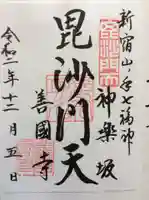 新宿山ノ手七福神
神樂坂
毘沙門天
善國寺
令和二年十二月五日